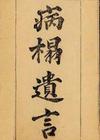 病榻遺言